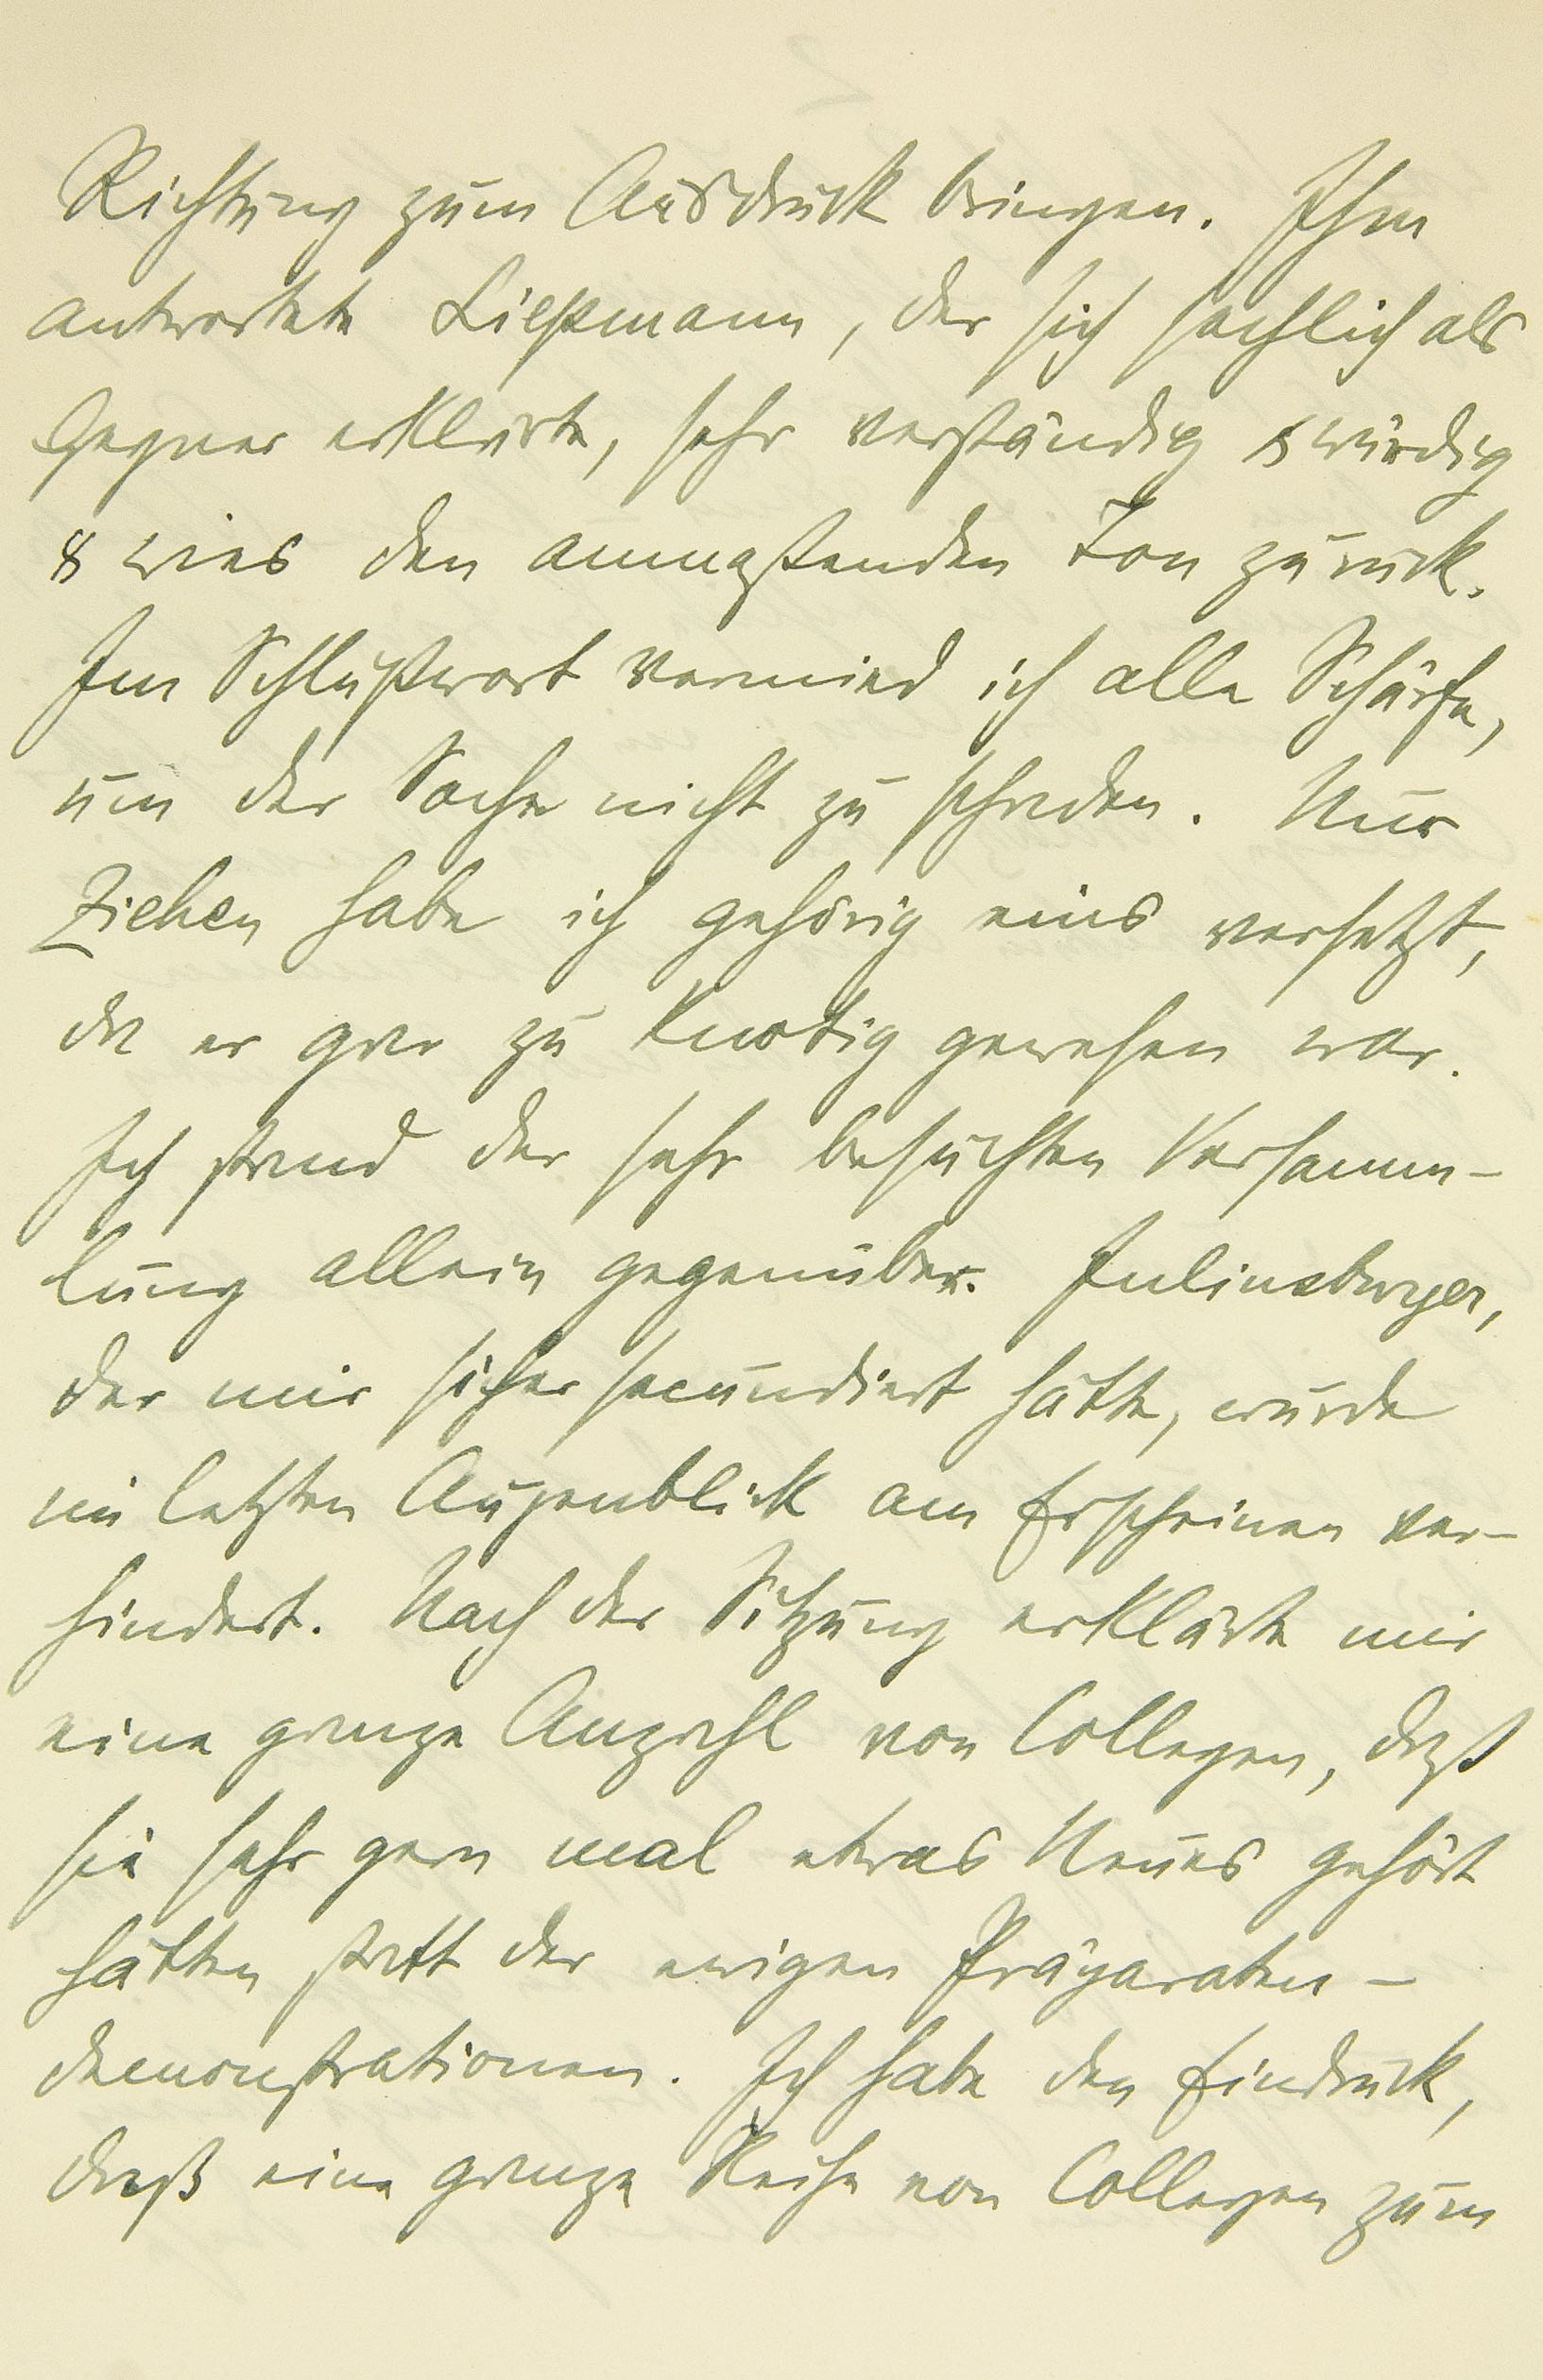 Richtung zum Ausdruck bringen. Ihm
antwortete Liepmann, der sich sachlich als
Gegner erklärte, sehr verständig & würdig
& wies den anmaßenden Ton zurück.
Im Schlußwort vermied ich alle Schärfe,
um der Sache nicht zu schaden. Nur
Ziehen habe ich gehörig eins versetzt,
da er gar zu knotig gewesen war.
Ich stand der sehr besuchten Versamm-
lung allein gegenüber. Juliusburger,
der mir sicher secundiert hätte, wurde
im letzten Augenblick am Erscheinen ver-
hindert. Nach der Sitzung erklärte mir
eine ganze Anzahl von Collegen, daß
sie sehr gern mal etwas Neues gehört
hätten statt der ewigen Präparaten-
demonstrationen. Ich habe den Eindruck,
daß eine ganze Reihe von Collegen zum